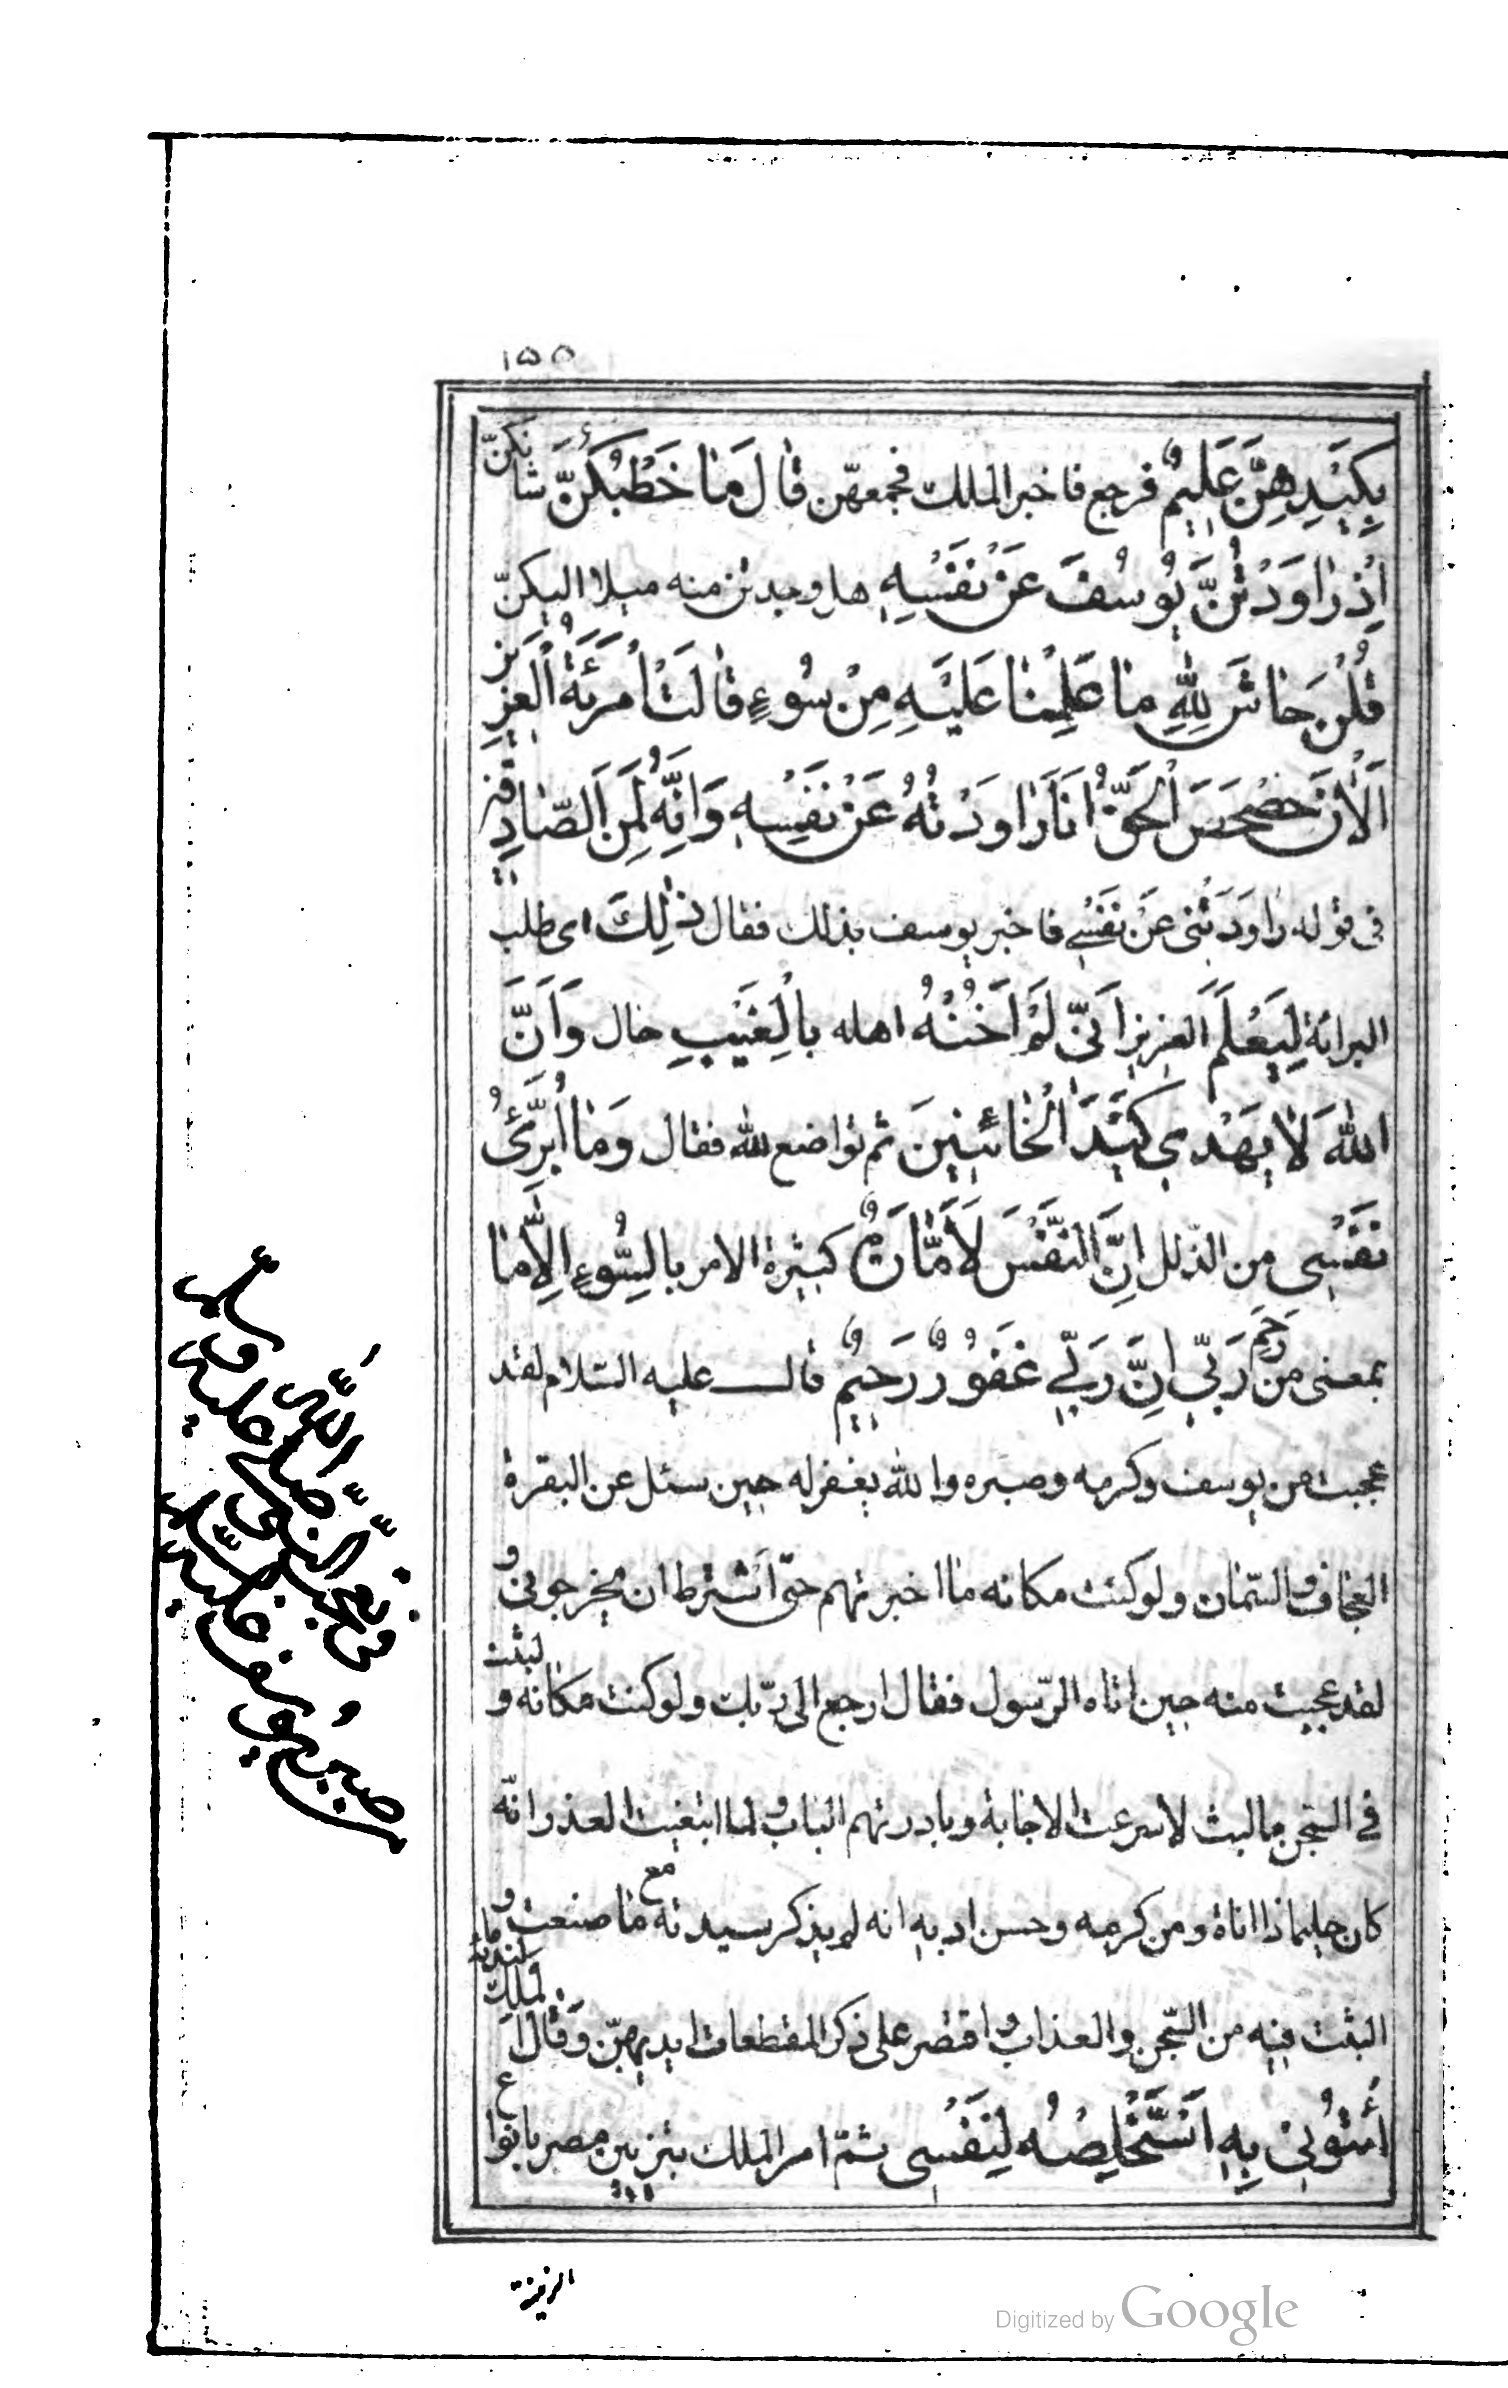 ١٥٥
بِكَيْدِهِنَّ عَلِيمٌ فرجع فاخبر الملك فجمعهن قَالَ مَا خَطْبُكُنَّ شانكنّ
اِذْ رَاوَدْتُنَّ يُوسُفَ عَنْ نَفْسِهِ هل وجدتن منه ميلا اليكنّ
قُلْنَ حَاشَ لِلّٰهِ مَا عَلِمْنَا عَلَيْهِ مِنْ سُوءٍ قَالَتِ امْرَئَةُ الْعَزِيزِ
اَلْاٰنَ حَصْحَصَ الْحَقُّ اَنَا رَاوَدْتُهُ عَنْ نَفْسِهِ وَاِنَّهُ لَمِنَ الصَّادِقِينَ
فى قوله رَاوَدَتْنى عَنْ نَفْسِى فاخبر يوسف بذلك فقال ذٰلِكَ اى طلب
البرائة لِيَعْلَمَ العزيز اَنّى لَمْ اَخُنْهُ اهله بِالْغَيْبِ حال وَاَنَّ
اللّٰهَ لَا يَهْدِي كَيْدَ الْخَائِنِينَ ثم تواضع لله فقال وَمَا اُبَرِّئُ
نَفْسِى من الذلل اِنَّ النَّفْسَ لَاَمَّارَةٌ كثيرة الامر بِالسُّوءِ اِلَّا مَا
بمعنى من رَحِمَ رَبِّي اِنَّ رَبِّي غَفُورٌ رَحِيمٌ قال عليه السّلام لقد
عجبت من يوسف وكرمه وصبره والله يغفر له حين سئل عن البقرة
العجاف والسّمان ولو كنت مكانه ما اخبرتهم حتّى اشترط ان يخرجونى و
لقد عجبت منه حين اتاه الرّسول فقال ارجع الى ربّك ولو كنت مكانه و لبثت
فى السّجن ما لبث لاسرعت الاجابة وبادرتهم الباب ولما ابتغيت العذر انّه
كان حليما ذا اناة ومن كرمه وحسن ادبه انه لم يذكر سيدته مع ما صنعت و
البثت فيه من السّجن والعذاب واقتصر على ذكر المقطعات ايديهنّ وَقَالَ الْمَلِكُ
ائْتُونِى بِهِ اَسْتَخْلِصْهُ لِنَفْسِى ثمّ امر الملك بتزيين مصر بانواع
الزينة
Digitized by Google